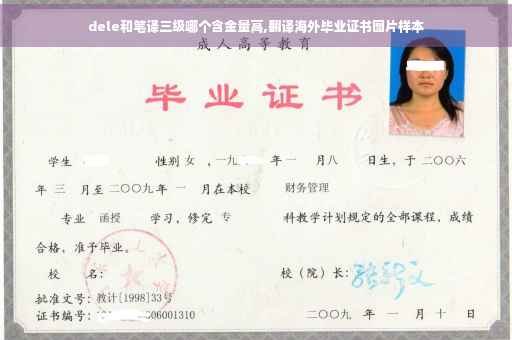 dele和笔译三级哪个含金量高,翻译海外毕业证书图片样本
成人高等教育
毕业证书
学生 性别 女 ,一九 年一 月八 日生，于二〇〇六
年 三 月至二〇〇九年 一 月在本校 财务管理
专业 函授 学习，修完 专 科教学计划规定的全部课程，成绩
合格，准予毕业。
校 名： 校（院）长：
批准文号：教计[1998]33号
证书编号： 006001310 二〇〇九 年 一 月 十 日